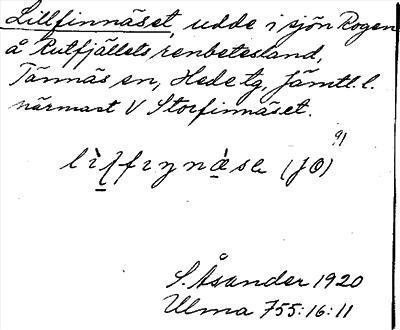 Lillfinnäset, udde i sjön Rogen
å Rutfjällets renbetesland,
Tännäs sn, Hede tg, Jämtl. l.
närmast V Storfinnäset.
91
(JO)
S. Åsander 1920
Ulma 755:16:11